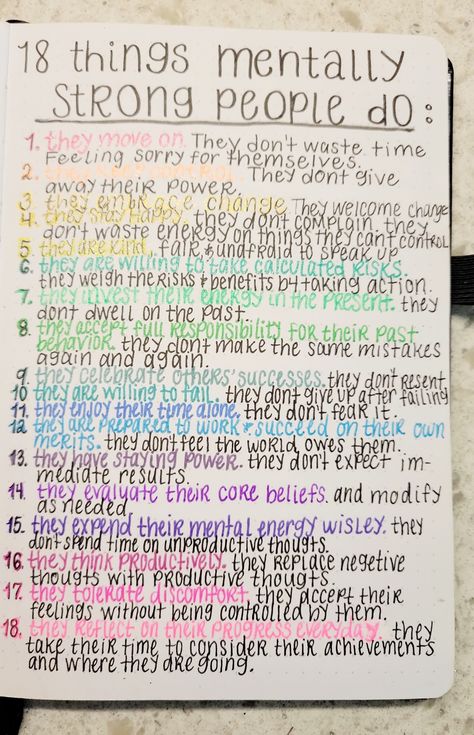 18 things mentally
strong people do:
1. they move on. They don't waste time
feeling sorry for themselves.
2. they keep control. They dont give
away their power.
3. they embrace change. They welcome change
4. they stay happy. they dont complain. they
don't waste energy on things they cant control
5. they are kind. fair & unafraid to speak up
6. they are willing to take calculated risks.
they weigh the risks & benefits b4 taking action.
7. they invest their energy in the present. they
dont dwell on the past.
8. they accept full responsibility for their past
behavior. they don't make the same mistakes
again and again.
9. they celebrate others' successes. they don't resent.
10 they are willing to fail. they dont give up after failing
11. they enjoy their time alone. they don't fear it.
12 they are prepared to work & succeed on their own
merits. they don't feel the world owes them.
13. they have staying power. they don't expect im-
mediate results.
14. they evaluate their core beliefs. and modify
as needed.
15. they expend their mental energy wisley. they
dont spend time on unproductive thougts.
16. they think productively. they replace negetive
thougts with productive thougts.
17. they tolerate discomfort. they accept their
feelings without being controlled by them.
18. they reflect on their progress everyday. they
take their time to consider their achievements
and where they are going.